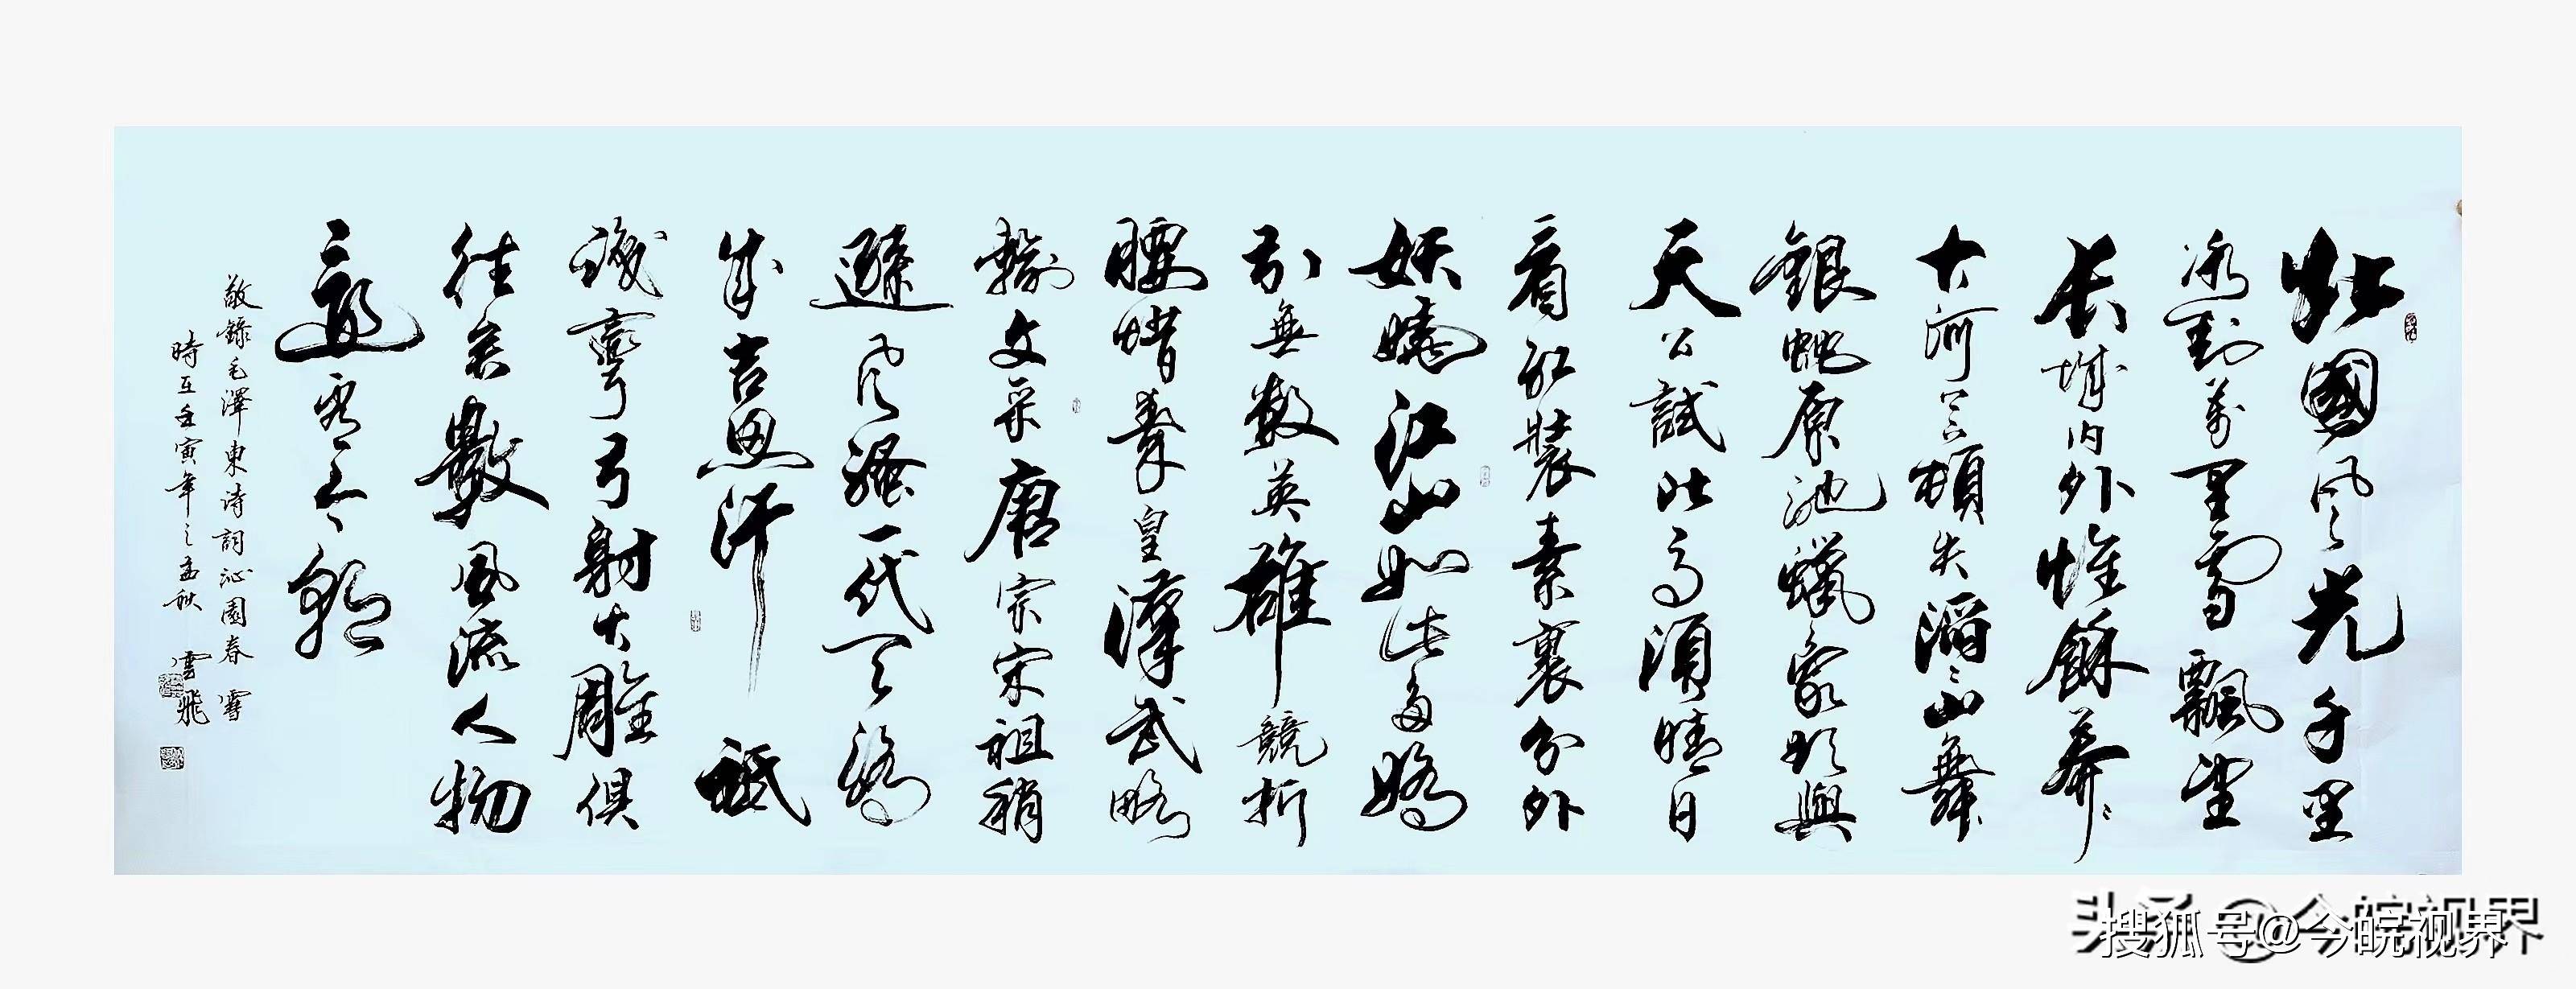 北國風光千里
冰封萬里雪飄望
長城内外惟餘莽〻
大河上下頓失滔〻山舞
銀蛇原池蠟象欲與
天公試比高須晴日
看紅裝素裹分外
妖嬈江山如此多嬌
引無數英雄競折
腰惜秦皇漢武略
輸文采唐宗宋祖稍
遜風騷一代天驕
成吉思汗祇
識彎弓射大雕俱
往矣數風流人物
還看今朝
敬錄毛澤東诗詞沁園春 雪
時在壬寅年之孟秋 雲飛
头条@今皖视界
搜狐号@今皖视界